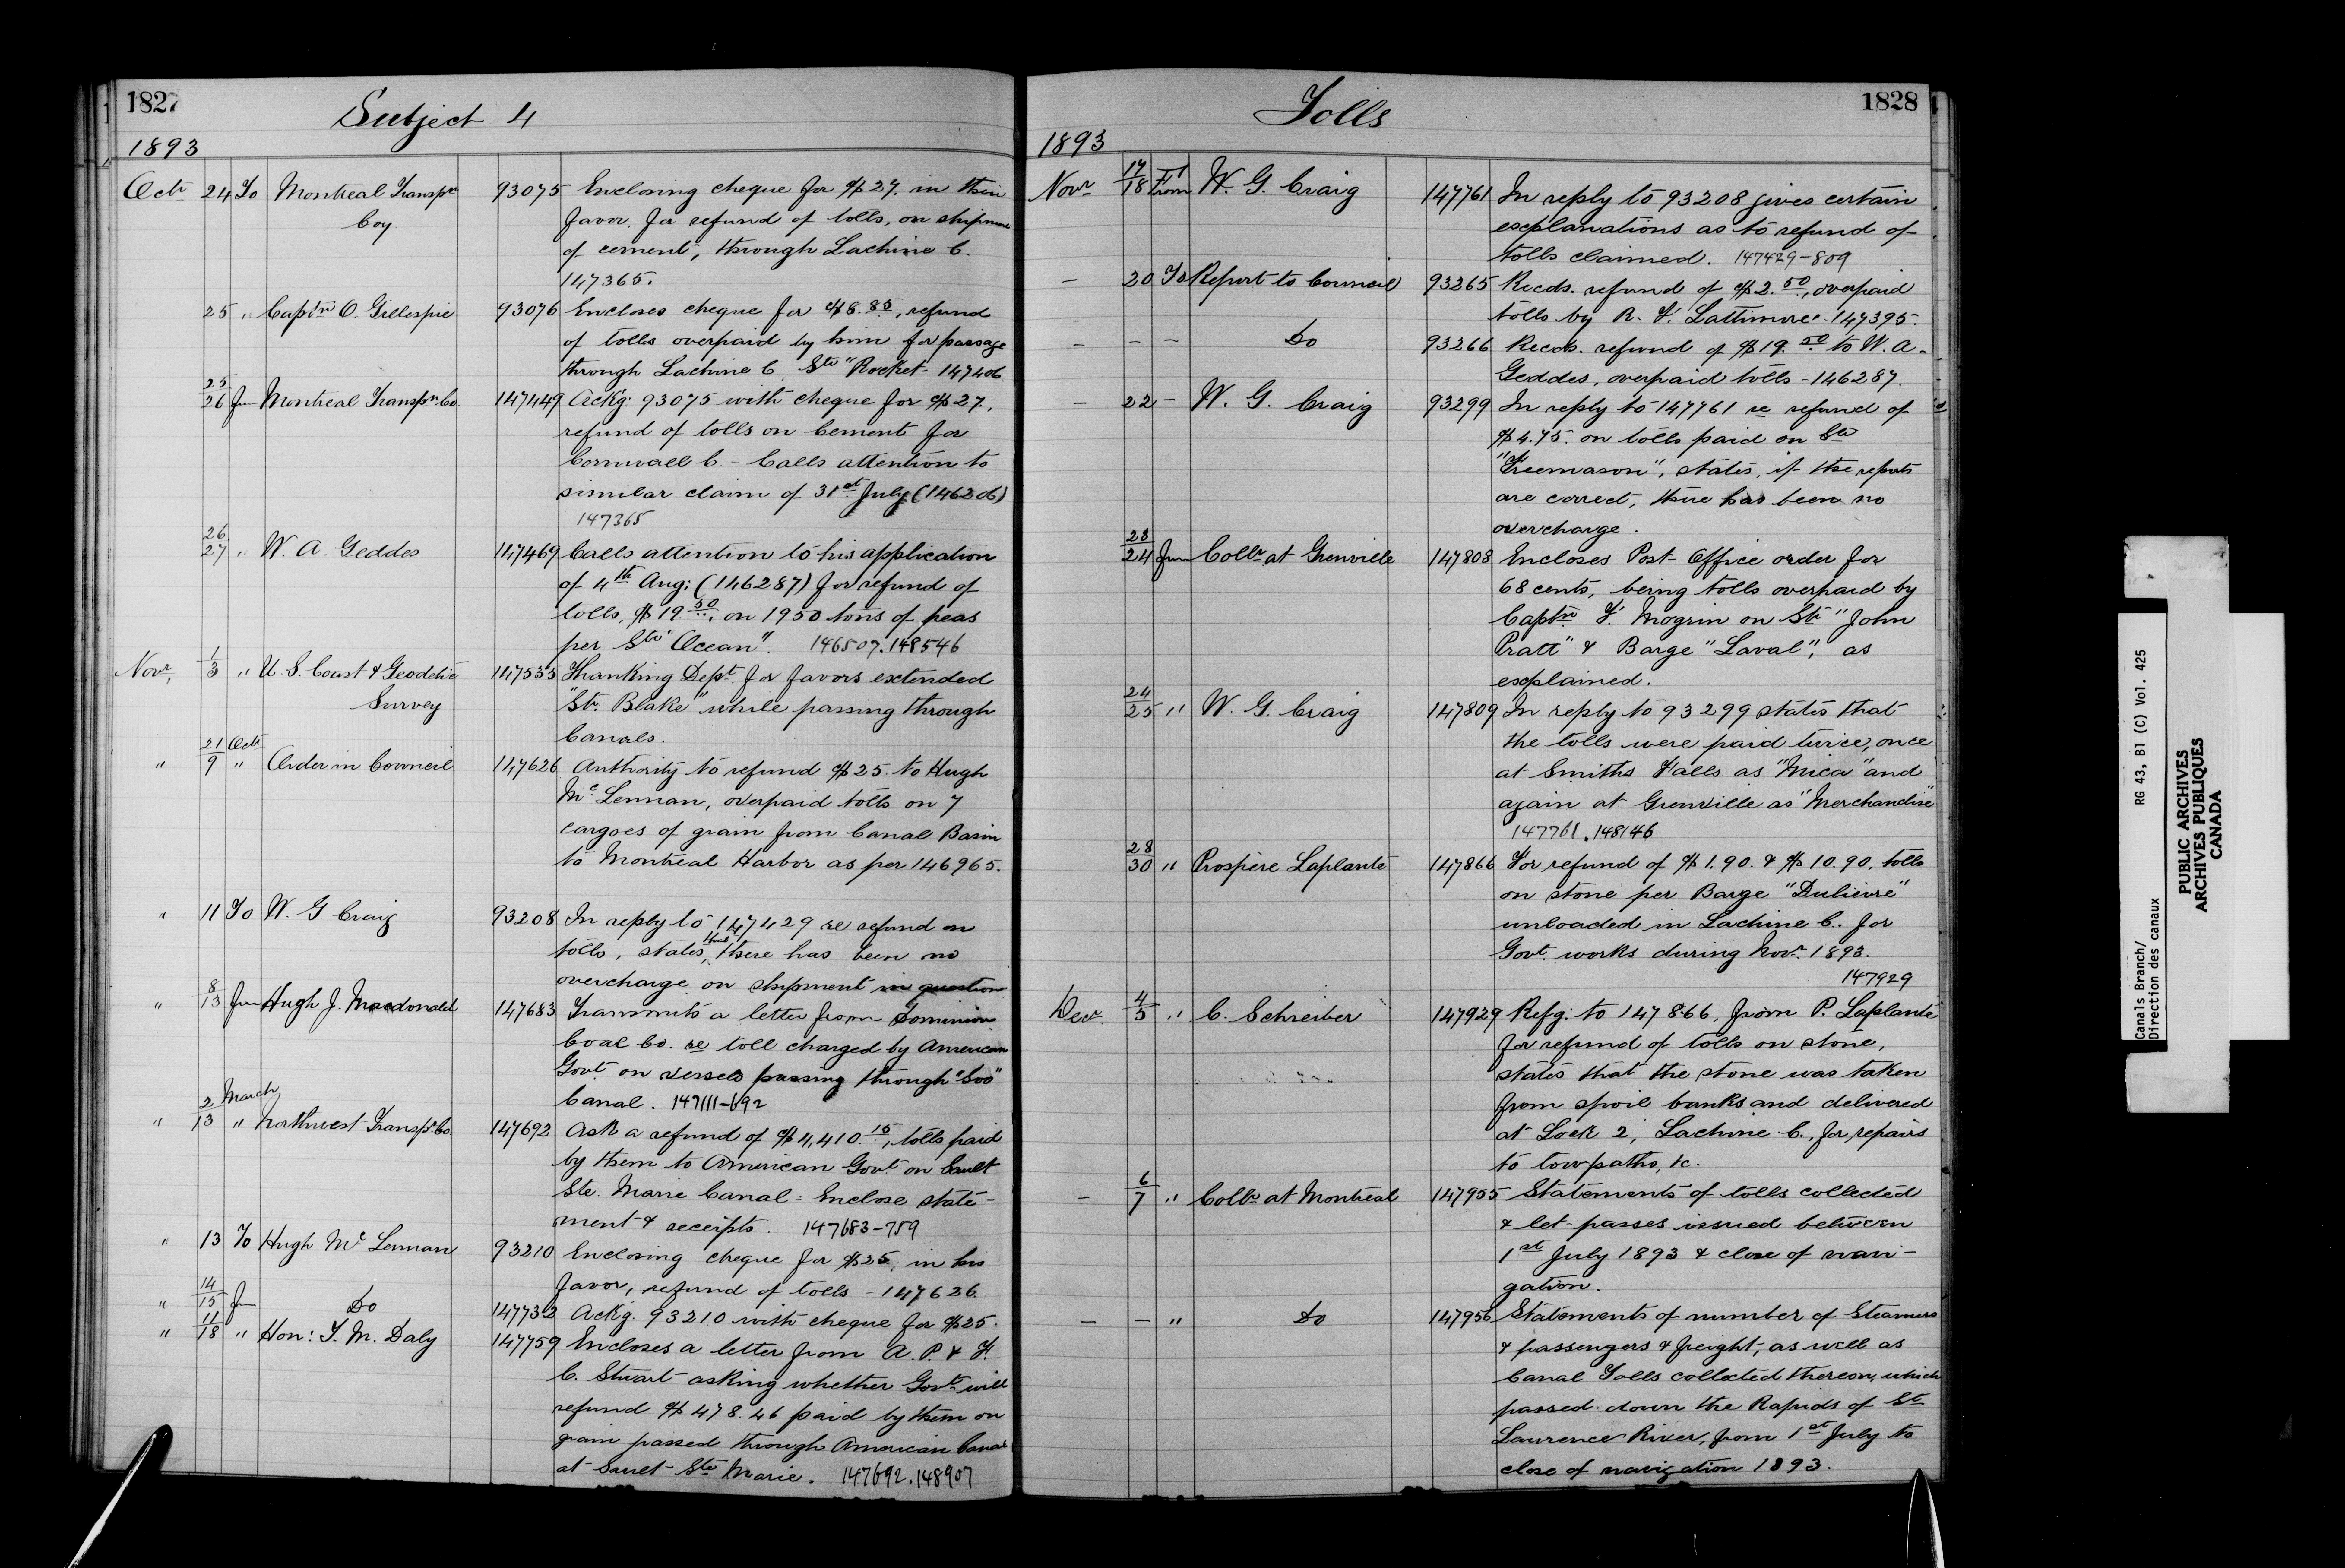 1827
Subject 4
1893
Octr 24 To Montreal Transpn 93075 Enclosing cheque for $27. in their
Coy favor, for refund of tolls, on shipment
of cement, through Lachine C.
147365.
25 " Captn O. Gillespie 93076 Encloses cheque for $8.85, refund
of tolls overpaid by him for passage
through Lachine C. Str "Rocket" 147406
25/26 Fm Montreal Transpn Co. 147449 Ackg. 93075 with cheque for $27,
refund of tolls on Cement for
Cornwall C. - Calls attention to
similar claim of 31st July (146206)
147365
26/27 " W. A. Geddes 147469 Calls attention to his application
of 4th Aug: (146287) for refund of
tolls, $19.50, on 1950 tons of peas
per Str "Ocean". 146507.148546
Novr, 1/3 " U. S. Coast & Geodetic 147535 Thanking Dept. for favors extended
Survey "Str. Blake" while passing through
Canals.
" 21/9 Octr " Order in Council 147626 Authority to refund $25. to Hugh
Mc Lennan, overpaid tolls on 7
cargoes of grain from Canal Basin
to Montreal Harbor as per 146965.
" 11 To W. G Craig 93208 In reply to 147429 re refund on
tolls, states, that there has been no
overcharge on shipment in question
" 8/13 Fm Hugh J. Macdonald 147683 Transmits a letter from Dominion
Coal Co. re toll charged by American
Govt. on vessels passing through "Soo"
Canal. 147111-692
" 2 March/13 " Northwest Transpn. Co. 147692 Ask a refund of $4,410.15, tolls paid
by them to American Govt on Sault
Ste. Marie Canal: Enclose state-
ment & receipts. 147683-759
" 13 To Hugh Mc Lennan 93210 Enclosing cheque for $25, in his
favor, refund of tolls - 147626.
" 14/15 Fm Do 147732 Ackg. 93210 with cheque for $25.
" 11/18 " Hon: T. M. Daly 147759 Encloses a letter from A. P. & F.
C. Stuart asking whether Govt. will
refund $478.46 paid by them on
grain passed through American Canal
at Sault Ste Marie. 147692.148907
1828
Tolls
1893
Novr 17/18 From W. G. Craig 147761 In reply to 93208 gives certain
explanations as to refund of
tolls claimed. 147429-809
- 20 To Report to Council 93265 Recds. refund of $2.50, overpaid
tolls by R. F. Lattimore. 147395.
- - - Do 93266 Recds. refund of $19.50 to W. A.
Geddes, overpaid tolls - 146287.
- 22 - W. G. Craig 93299 In reply to 147761 re refund of
$4.75. on tolls paid on Str
"Freemason", states, if the reports
are correct, there has been no
overcharge.
23/24 Fm Collr at Grenville 147808 Encloses Post Office order for
68 cents, being tolls overpaid by
Captn F. Mogrin on Str "John
Pratt" & Barge "Laval", as
explained.
24/25 " W. G. Craig 147809 In reply to 93299 states that
the tolls were paid twice, once
at Smiths Falls as "Mica" and
again at Grenville as "Merchandise"
147761.148146
28/30 " Prospère Laplante 147866 For refund of $1.90. & $10.90. tolls
on stone per Barge "Dulievre"
unloaded in Lachine C. for
Govt. works during Novr. 1893.
147929
Decr. 4/5 " C. Schreiber 147929 Refg: to 147866, from P. Laplante
for refund of tolls on stone,
states that the stone was taken
from spoil banks and delivered
at Lock 2, Lachine C., for repairs
to tow-paths, &c.
- 6/7 " Collr at Montreal 147955 Statements of tolls collected
& let-passes issued between
1st July 1893 & close of navi-
gation.
- - " Do 147956 Statements of number of Steamers
& passengers & freight, as well as
Canal Tolls collected thereon, which
passed down the Rapids of St.
Lawrence River, from 1st July to
close of navigation 1893.
Canals Branch/
Direction des canaux
RG 43, B1 (C) Vol. 425
PUBLIC ARCHIVES
ARCHIVES PUBLIQUES
CANADA